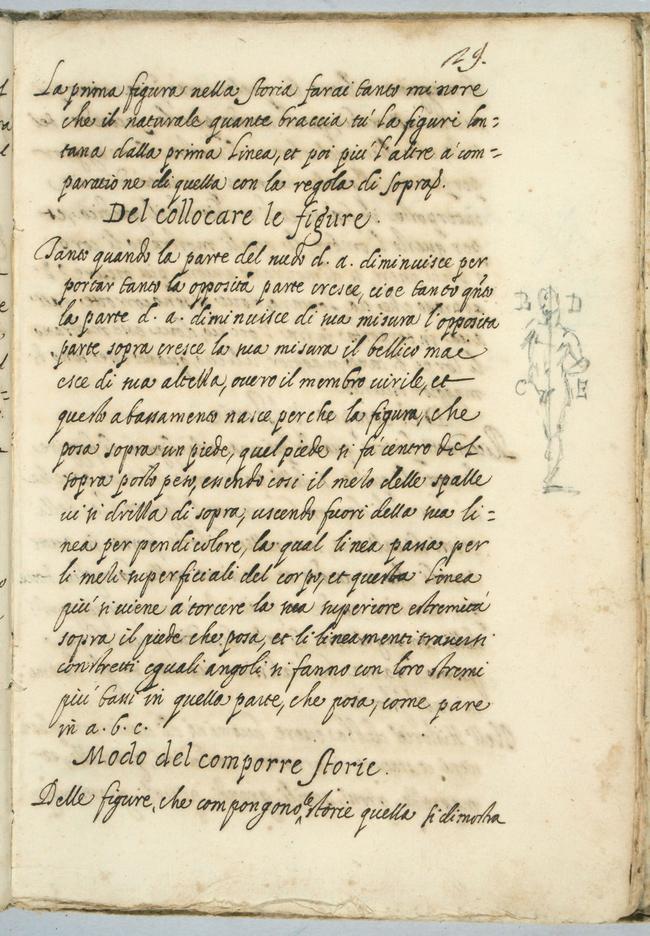 29.
La prima figura nella storia farai tanto minore
che il naturale quante braccia tu la figuri lon=
tana dalla prima linea, et poi piu l'altre a com=
paratione di quella con la regola di sopra.
Del collocare le figure.
Tanto quando la parte del nudo d. a. diminuisce per
portar tanto la opposita parte cresce, cioe tanto qnto
la parte d. a. diminuisce di sua misura l'opposita
parte sopra cresce la sua misura il bellico mai
esce di sua altezza, overo il membro virile, et
questo abassamento nasce perche la figura, che
posa sopra un piede, quel piede si fa centro del
sopra posto peso, essendo cosi il mezo delle spalle
vi si drizza di sopra, uscendo fuori della sua li=
nea perpendicolore, la qual linea passa per
li mezi superficiali del corpo, et questa linea
piu si viene a torcere la sua superiore estremità
sopra il piede che posa, et li lineamenti traversi
constretti equali angoli si fanno con loro stremi
piu bassi in quella parte, che posa, come pare
in a. b. c.
Modo del comporre storie.
Delle figure, che compongono le storie quella si dimostra
B D
C E